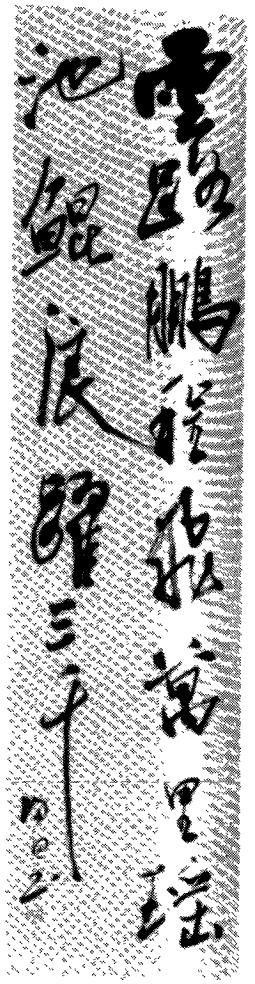 雲路鵬程飛萬里瑶
池鯤浪躍三千